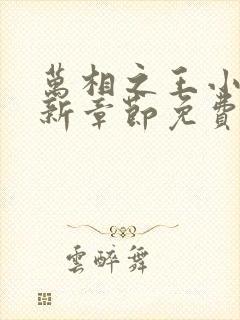 萬相之王小
新章節免費
雲醉舞